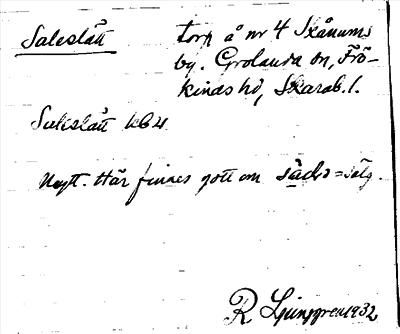 Saleslått torp å nr 4 Skånums
by. Grolanda sn, Frö-
kinds hd, Skarab. l.
Saleslått
Nytt. Här finnes gott om = sälg.
R Ljunggren 1932